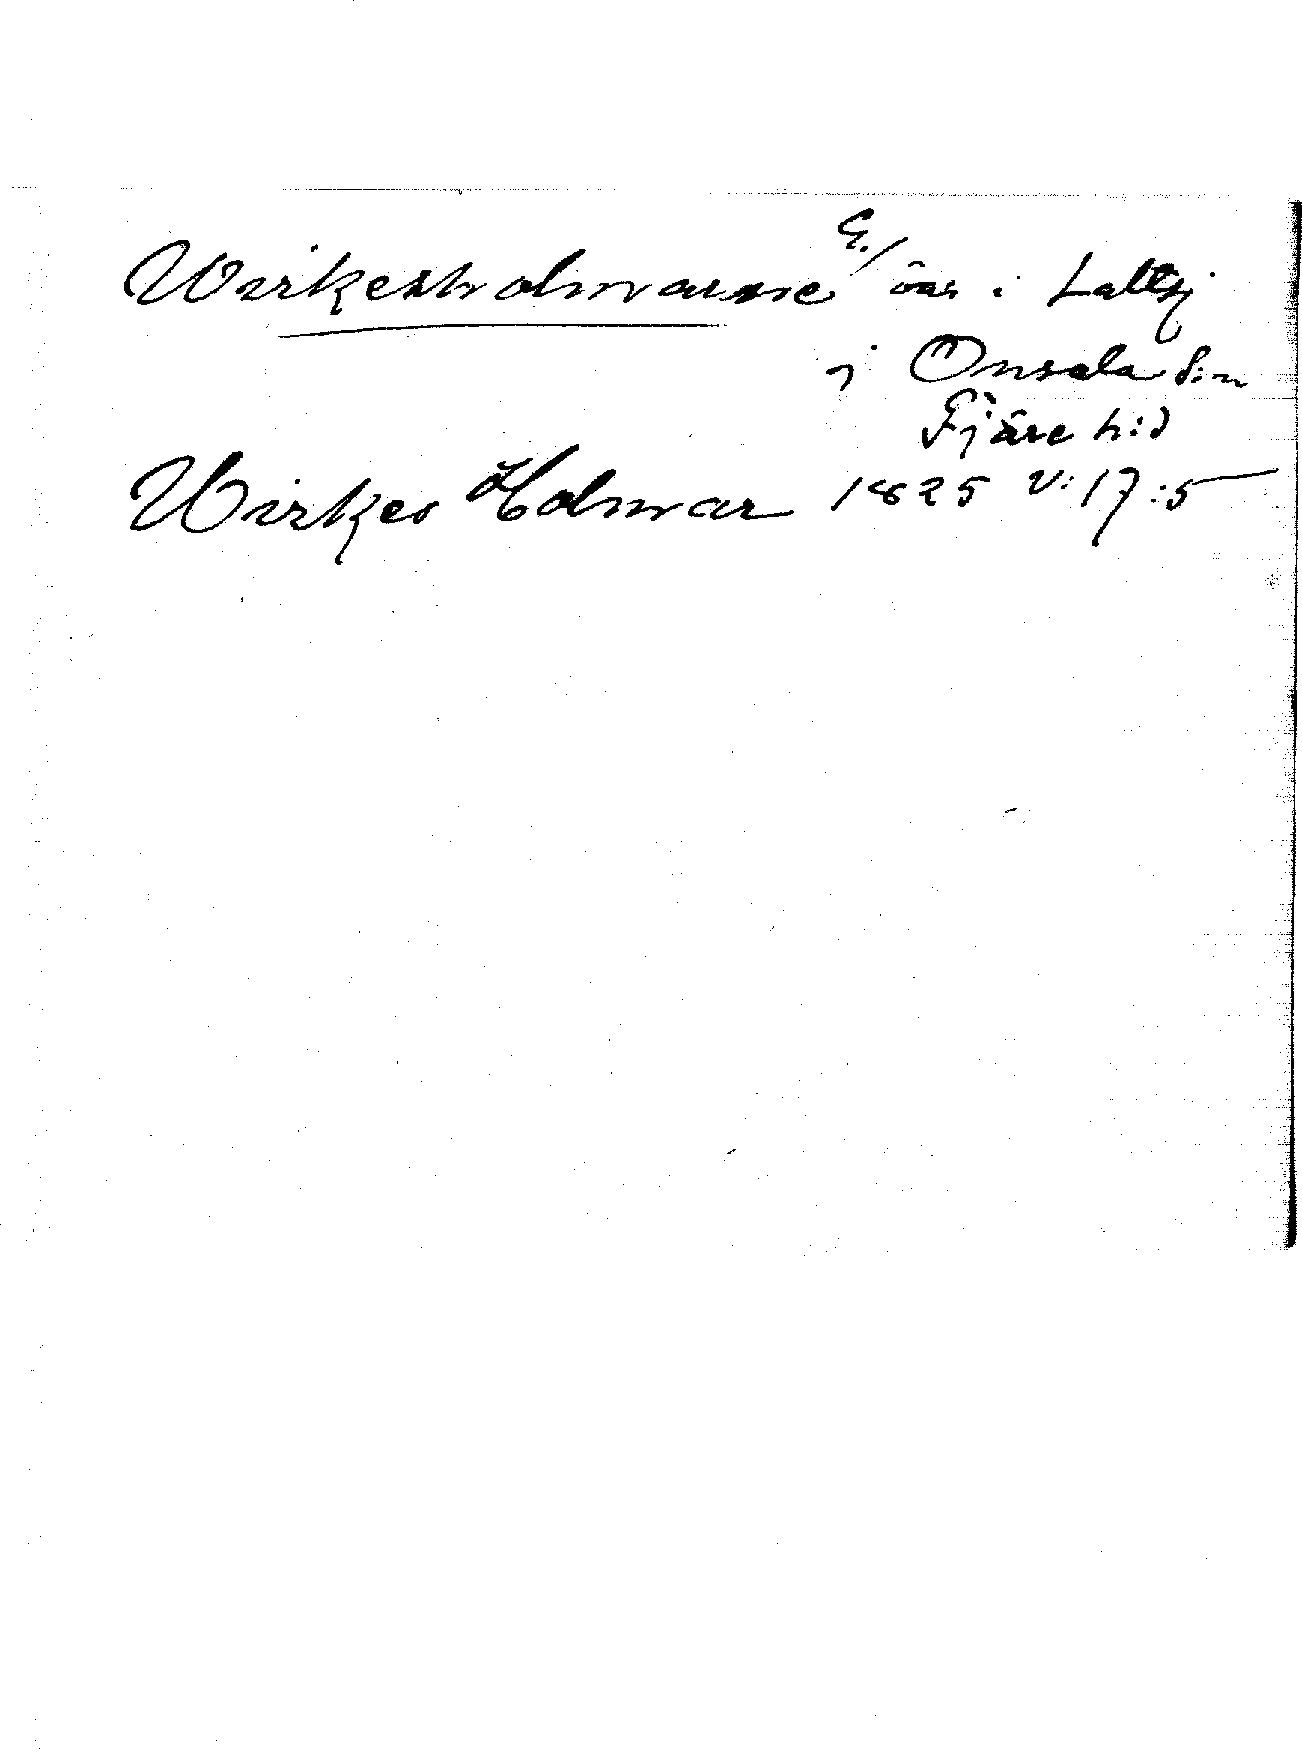 Wirkesholmarne G./ öar i Kattej
i Onsala s:n
Fjäre h:d
Wirkes Holmar 1825 V: 17:5